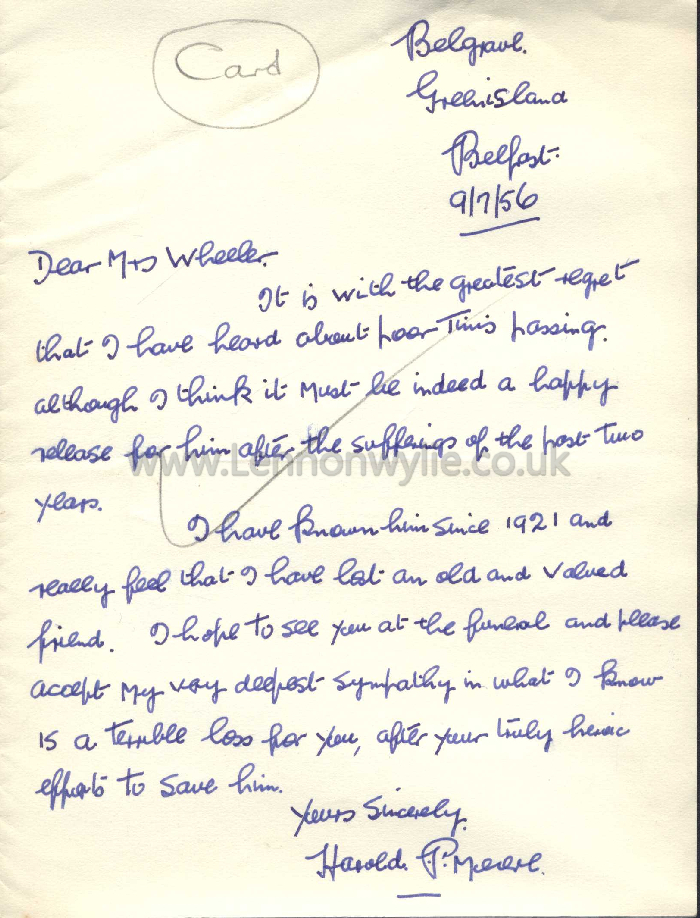 Card
Belgrave.
Greenisland
Belfast.
9/7/56
Dear Mrs Wheeler.
It is with the greatest regret
that I have heard about poor Tim's passing.
although I think it must be indeed a happy
release for him after the sufferings of the past two
www.Lennonwylie.co.uk
years.
I have known him since 1921 and
really feel that I have lost an old and valued
friend. I hope to see you at the funeral and please
accept my very deepest sympathy in what I know
is a terrible loss for you, after your truly heroic
efforts to save him.
Yours Sincerely.
Harold P.